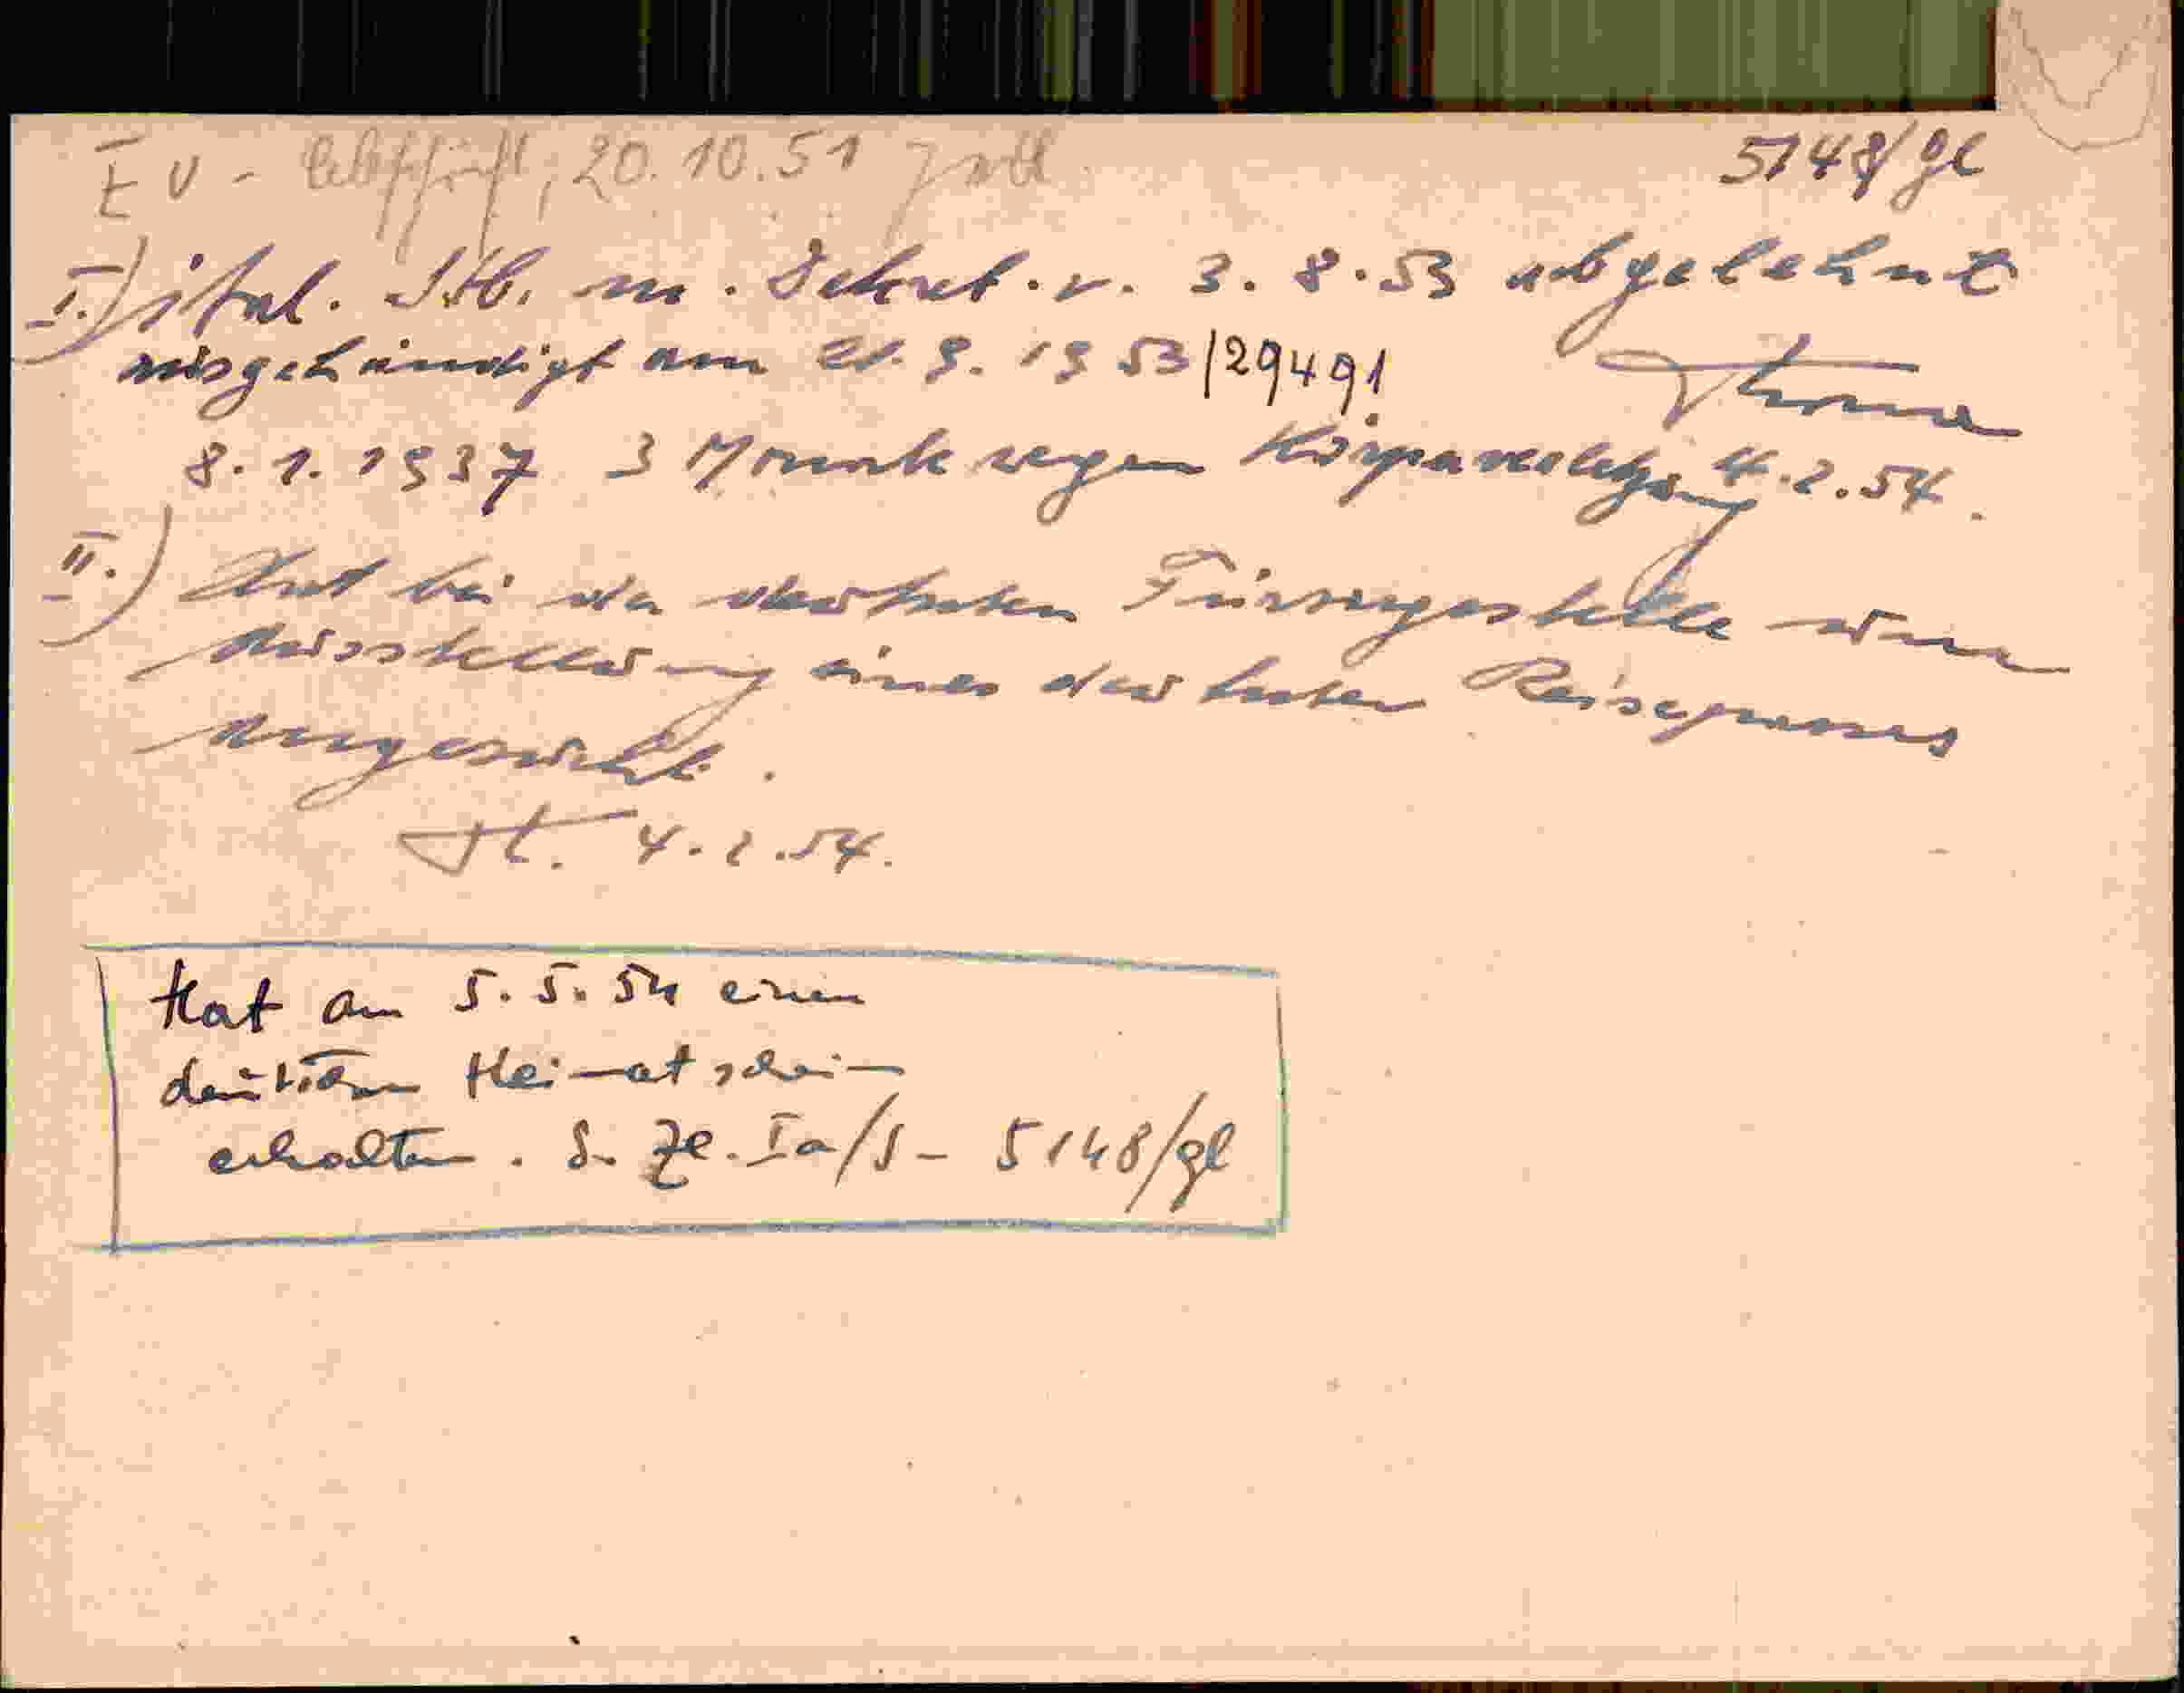 EV - 20.10.51
5148/gl
I.) ital. Stb. m. Dekret. v. 3. 8. 53 abgelehnt
ausgehändigt am 21. 9. 1953/29491
8. 1. 1937 3 Monate wegen Körperverletzung 4. 2. 54.
II.) Hat bei der deutschen Fürsorgestelle um
Ausstellung eines deutschen Reisepasses
angesucht.
4. 2. 54.
Hat am 5. 5. 54 einen
deutschen Heimatschein
erhalten. S. Zl. Ia/S - 5148/gl